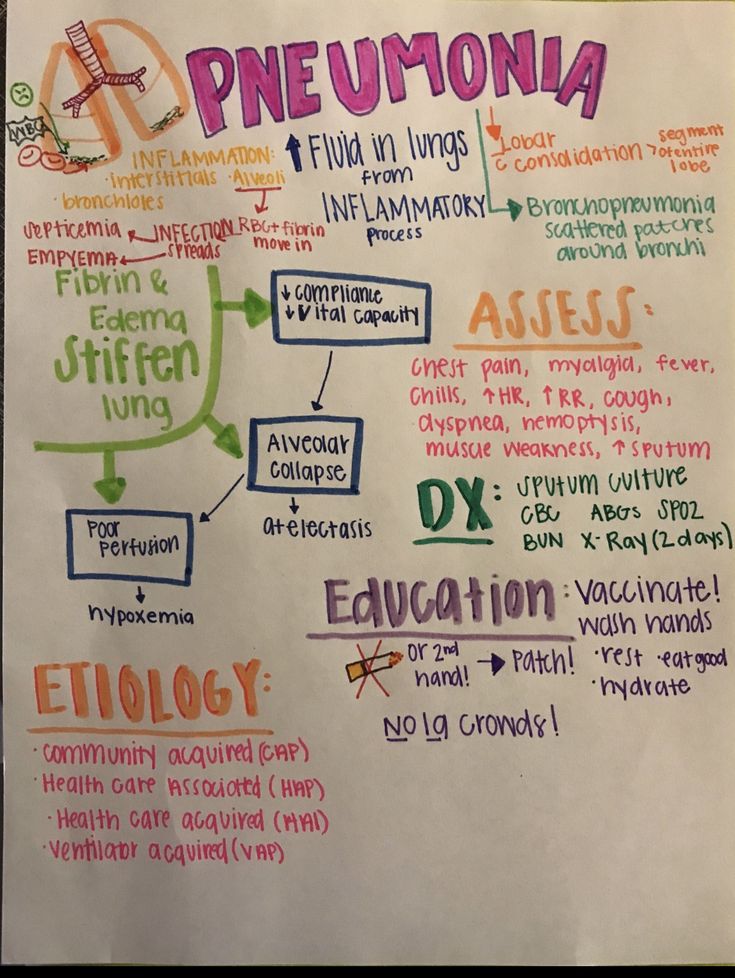 PNEUMONIA
WBC
INFLAMMATION:
·interstitials ·Alveoli
·bronchioles
RBC+fibrin
move in
INFECTION
spreads
septicemia
EMPYEMA
↑Fluid in lungs
from
INFLAMMATORY
process
Lobar
c consolidation > segment
of entire
lobe
Bronchopneumonia
scattered patches
around bronchi
Fibrin &
Edema
Stiffen
lung
↓compliance
↓Vital capacity
Alveolar
collapse
atelectasis
Poor
perfusion
hypoxemia
ASSESS:
chest pain, myalgia, fever,
chills, ↑HR, ↑RR, cough,
dyspnea, hemoptysis,
muscle weakness, ↑sputum
DX: sputum culture
CBC ABGs SPO2
BUN X-Ray (2 days)
Education: Vaccinate!
wash hands
or 2nd
hand! → Patch!
·rest ·eat good
·hydrate
No lg crowds!
ETIOLOGY:
·community acquired (CAP)
·Health care Associated (HAP)
·Health care acquired (HAI)
·Ventilator acquired (VAP)